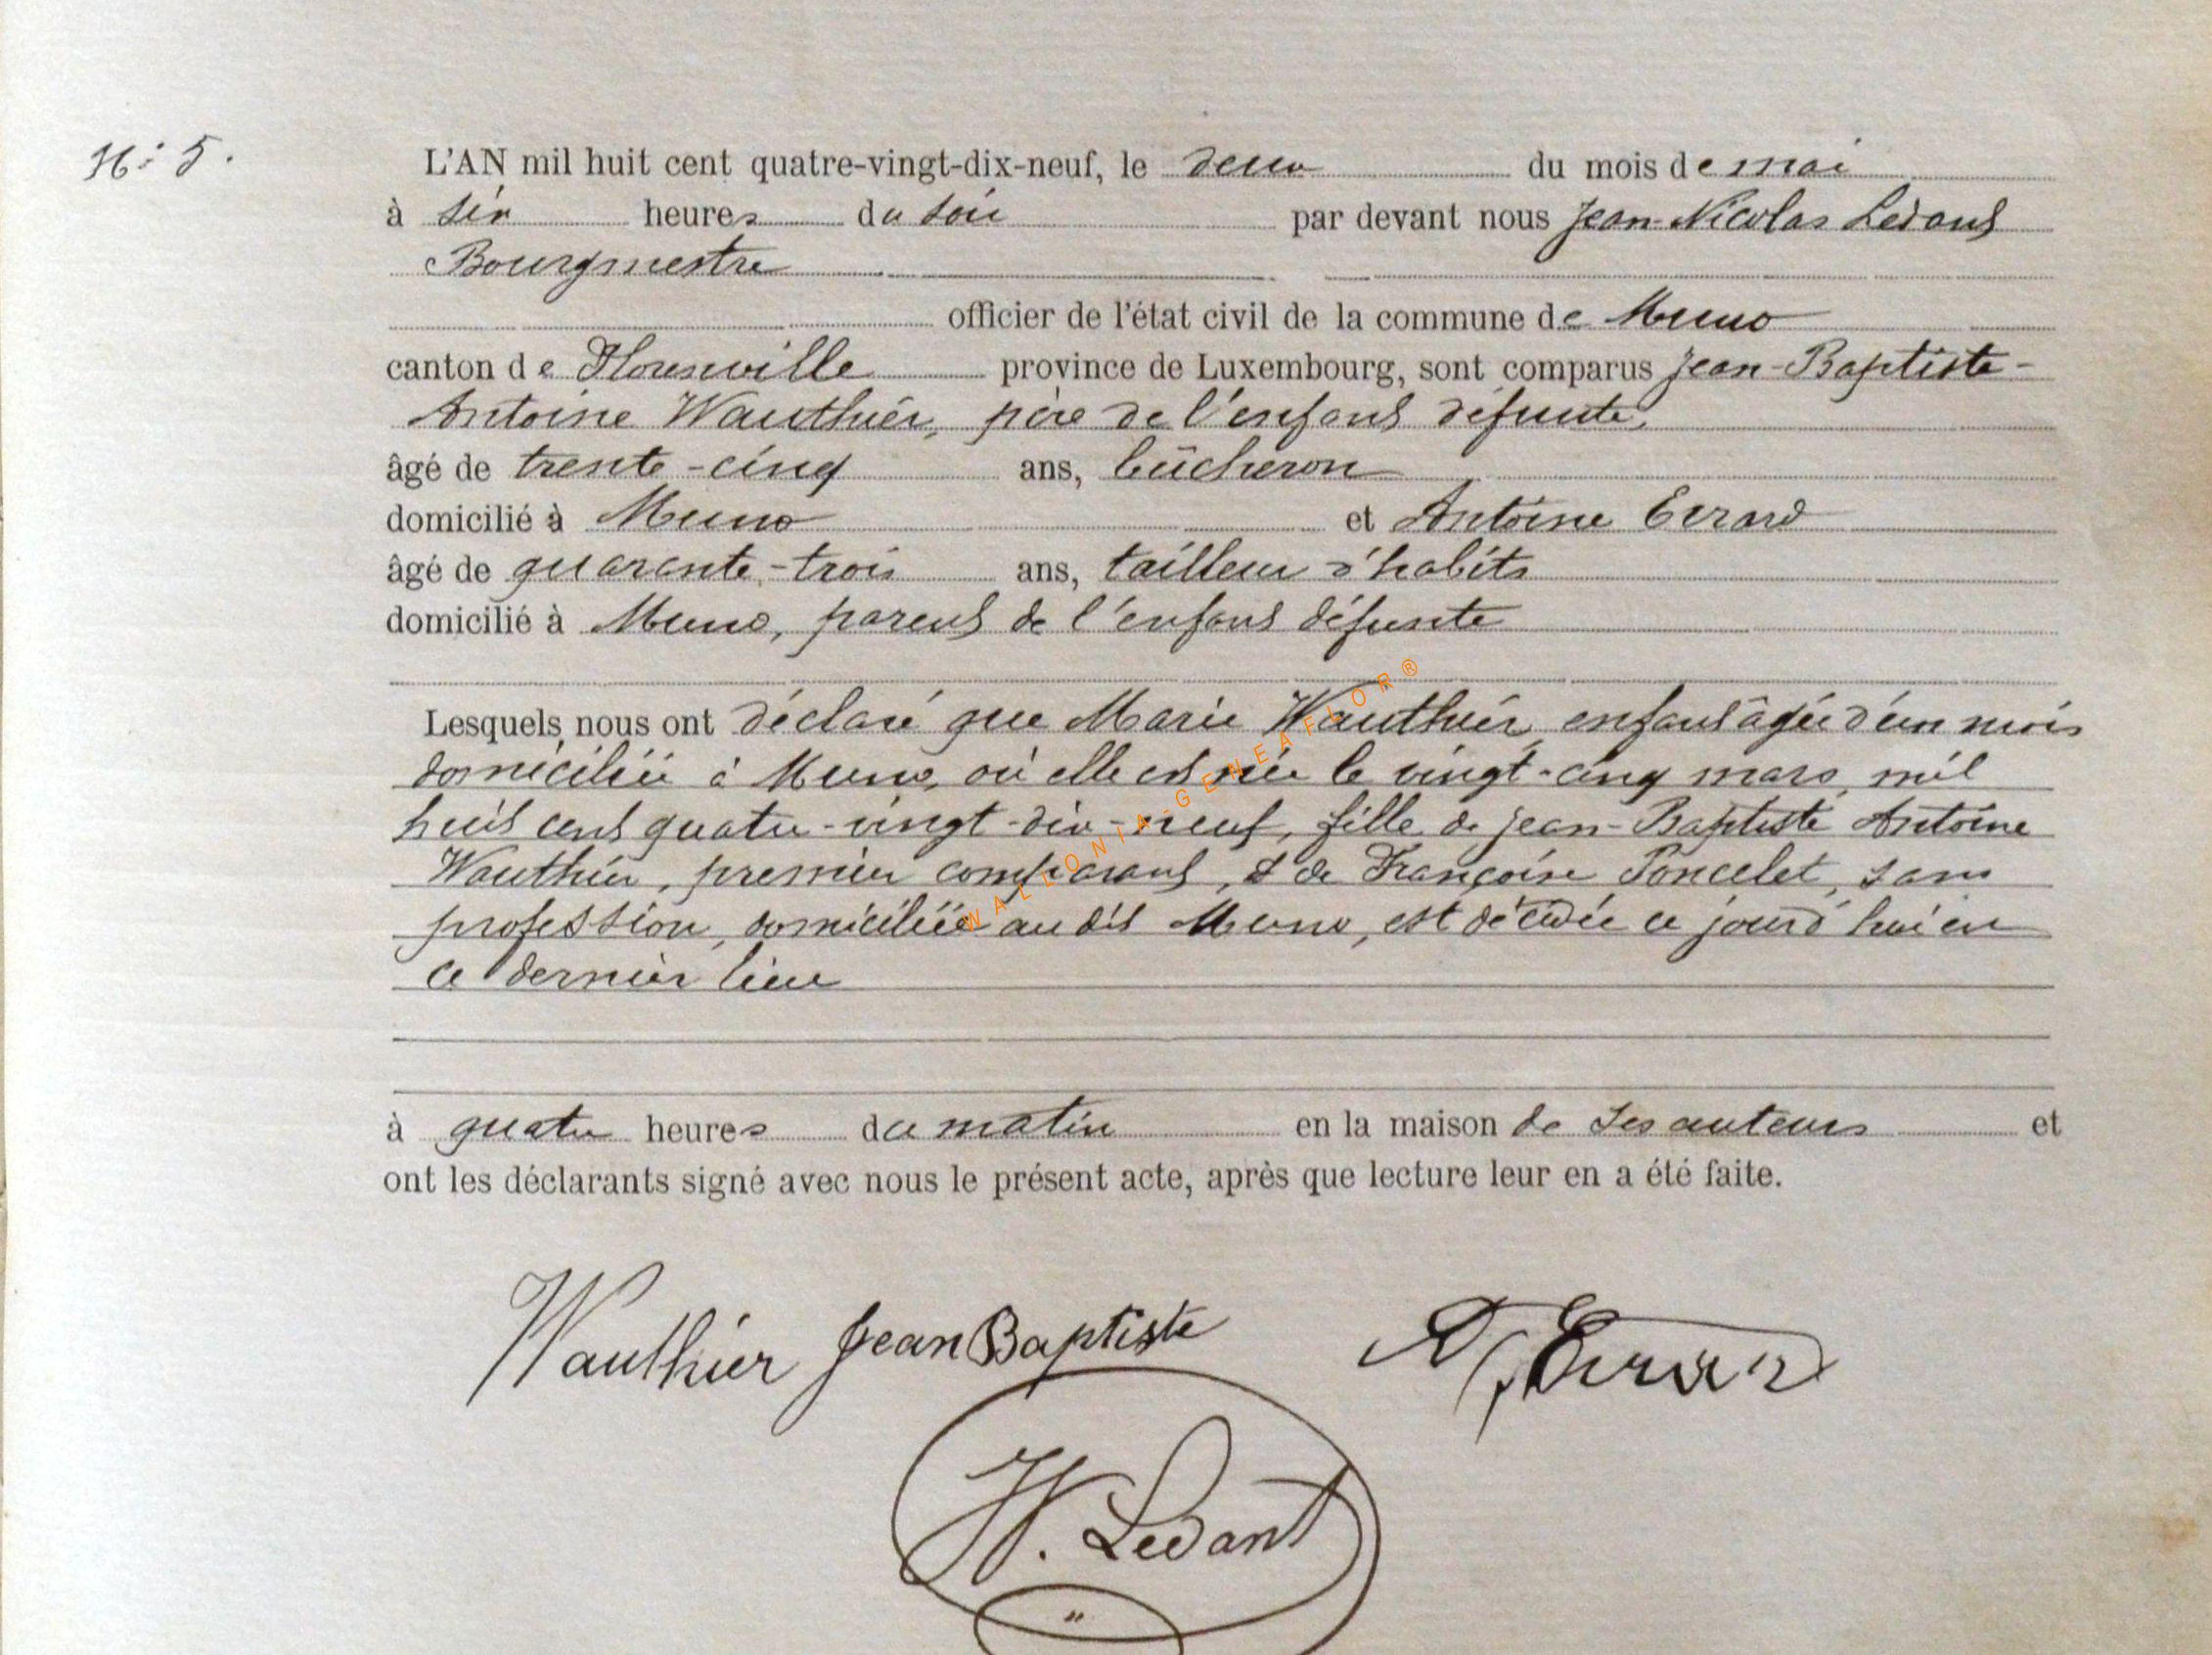 N° 5.
L'AN mil huit cent quatre-vingt-dix-neuf, le deux du mois de mai
à six heures du soir par devant nous Jean-Nicolas Ledant
Bourgmestre
officier de l'état civil de la commune de Muno
canton de Florenville province de Luxembourg, sont comparus Jean-Baptiste-
Antoine Wauthier, père de l'enfant défunte,
âgé de trente-cinq ans, bûcheron
domicilié à Muno et Antoine Evrard
âgé de quarante-trois ans, tailleur d'habits
domicilié à Muno, parent de l'enfant défunte
Lesquels nous ont déclaré que Marie Wauthier, enfant âgée d'un mois
domiciliée à Muno, où elle est née le vingt-cinq mars, mil
huit cent quatre-vingt-dix-neuf, fille de Jean-Baptiste Antoine
Wauthier, premier comparant, & de Françoise Poncelet, sans
profession, domiciliée au dit Muno, est décédée ce jourd'hui en
ce dernier lieu
à quatre heures du matin en la maison de ses auteurs et
ont les déclarants signé avec nous le présent acte, après que lecture leur en a été faite.
Wauthier Jean Baptiste
A. Evrard
N. Ledant
WALLONIA-GENEAFLOR®